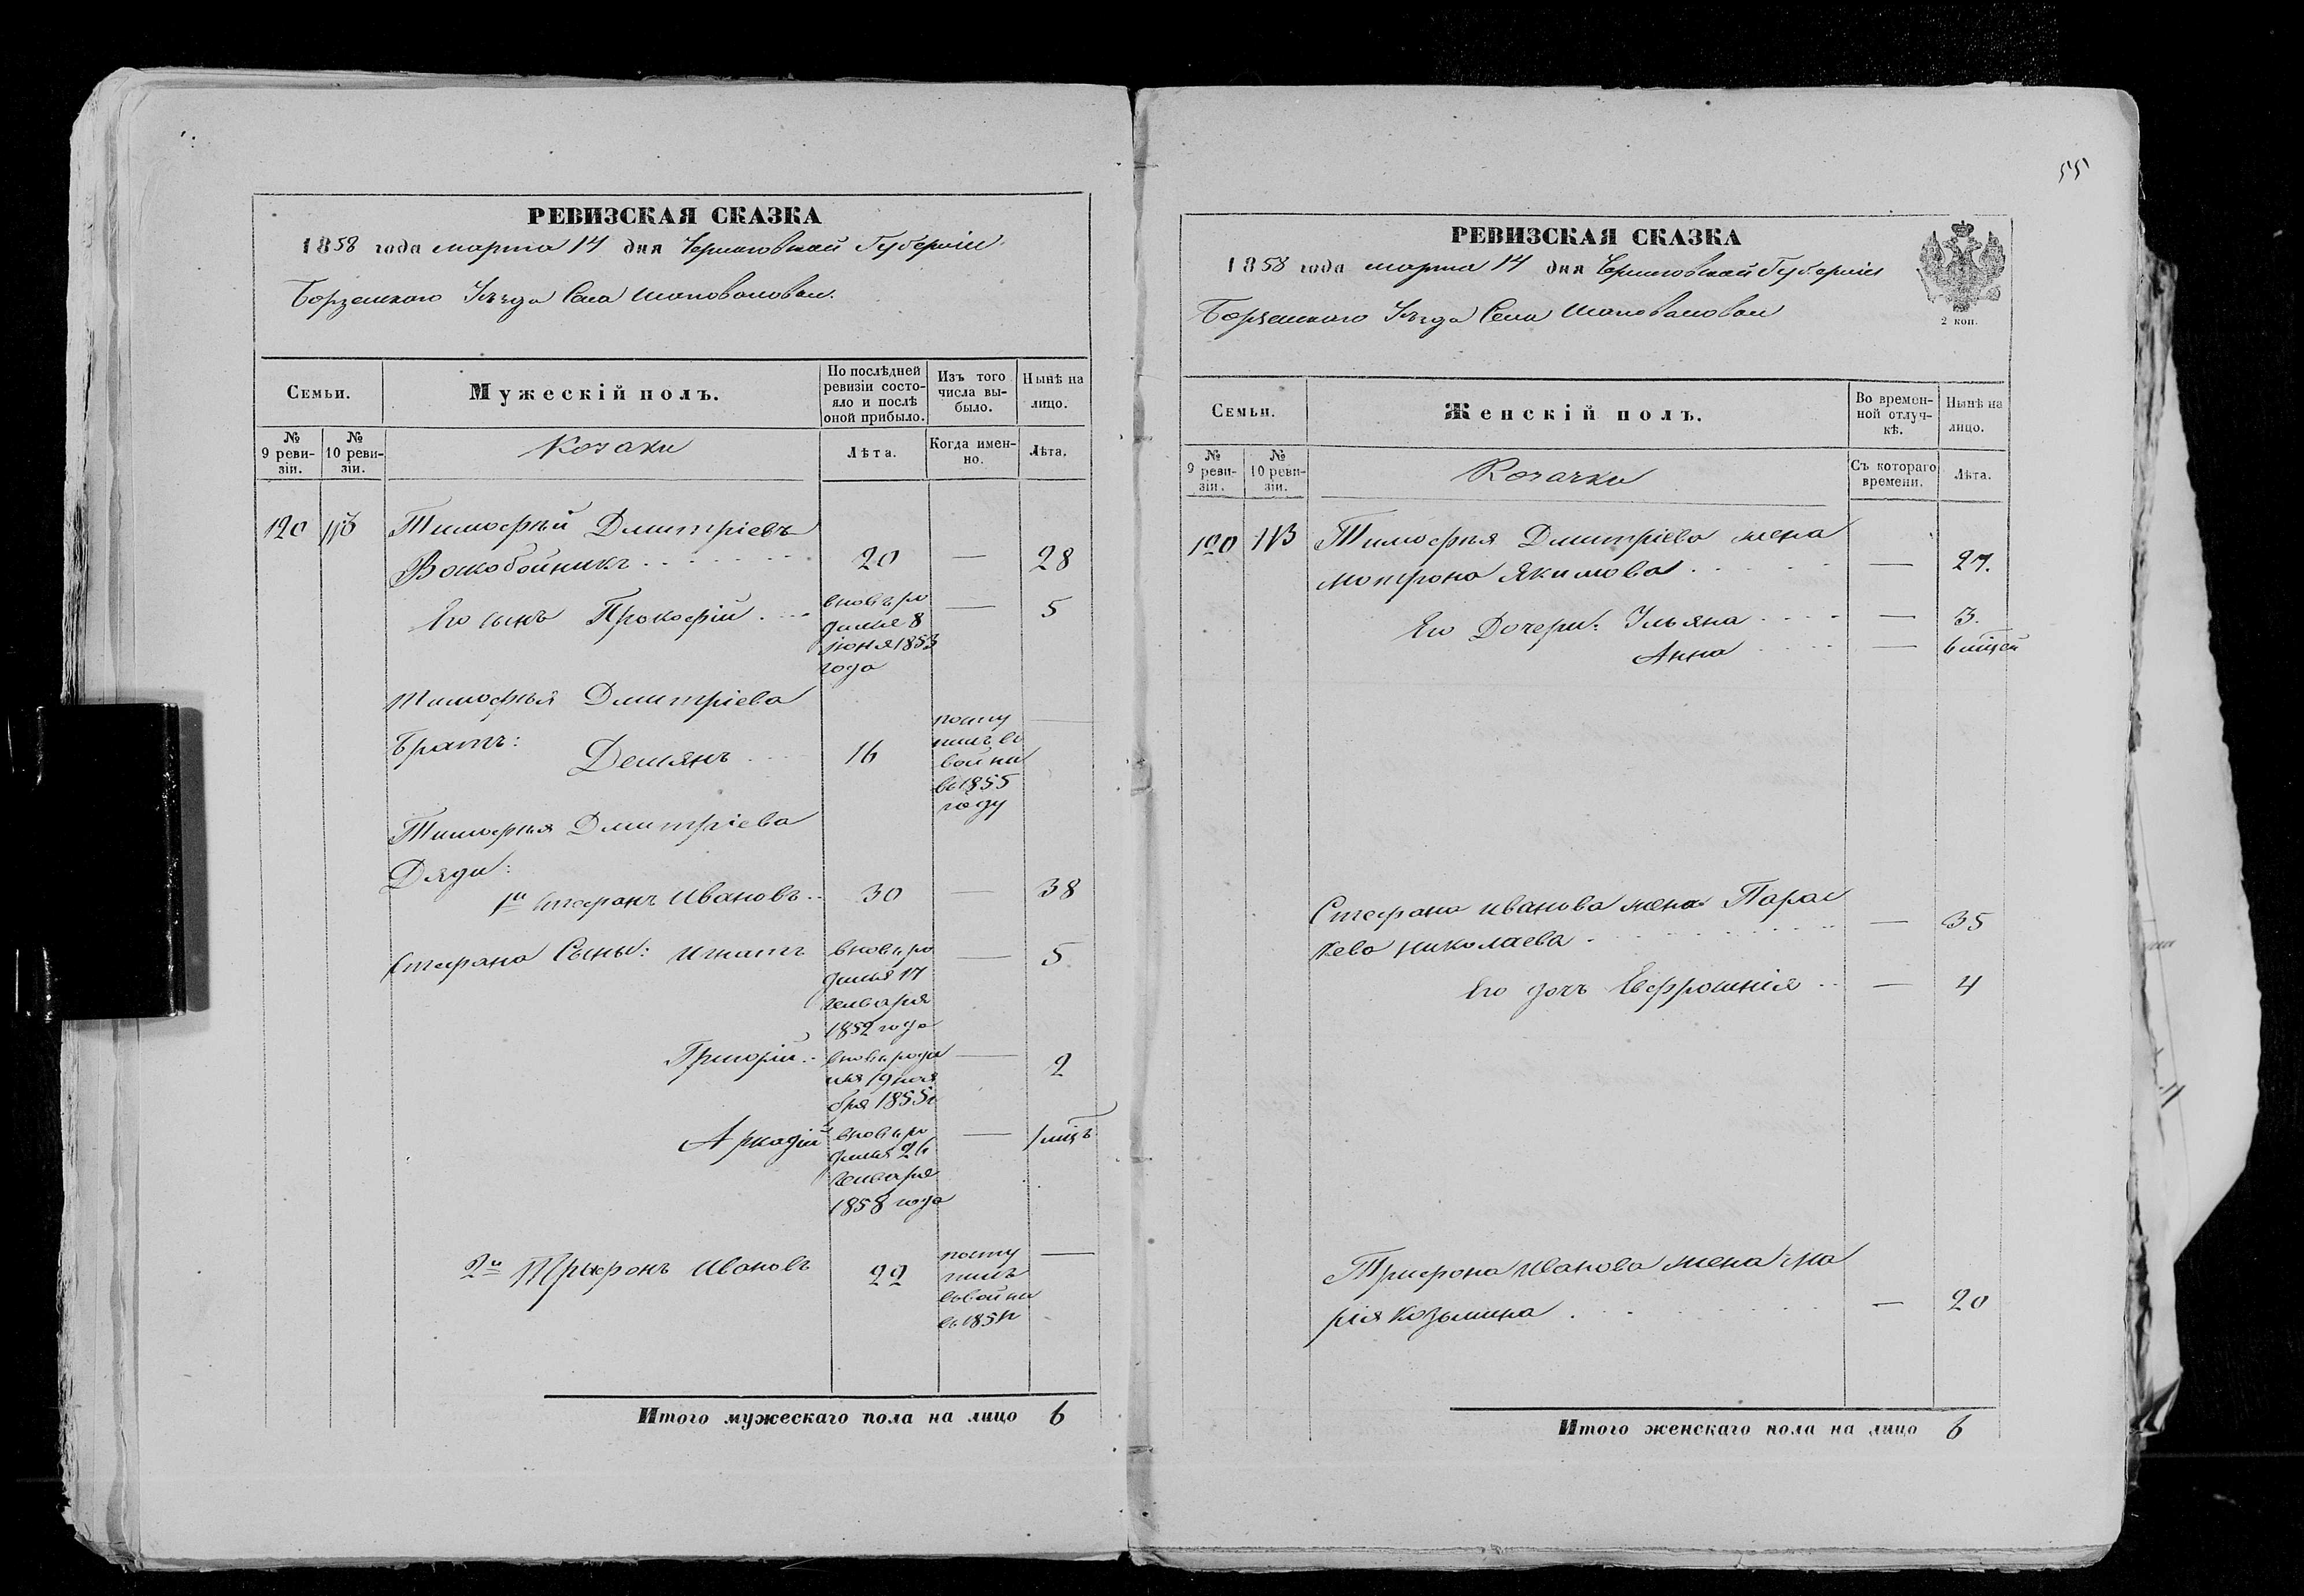 РЕВИЗСКАЯ СКАЗКА
1858 года марта 14 дня Черниговской Губерніи
Борзенскаго Уѣзда Села Шаповаловки.
Семьи.
Мужескій полъ.
По послѣдней ревизіи состояло и послѣ оной прибыло.
Изъ того числа выбыло.
Нынѣ на лицо.
№ 9 ревизіи.
№ 10 ревизіи.
Козаки
Лѣта.
Когда именно.
Лѣта.
120 113 Тимофѣй Дмитріевъ
Воскобойникъ 20 — 28
Его сынъ Прокофій вновь ро — 5
дился 8
іюня 1853
года
Тимофѣя Дмитріева
Братъ:
Демянъ 16 посту —
пилъ въ
войска
въ 1855
году
Тимофѣя Дмитріева
Дяди:
1й Стефанъ Ивановъ 30 — 38
Стефана Сыны: Игнатъ вновь ро — 5
дился 17
генваря
1852 года
Григорій вновь роди — 2
лся 19 ноя
бря 1855г
Аркадій вновь ро — 1 мѣцъ
дился 26
генваря
1858 года
2й Трыфонъ Ивановъ 22 посту —
пилъ
въ войска
въ 185
Итого мужескаго пола на лицо 6
55
РЕВИЗСКАЯ СКАЗКА
1858 года марта 14 дня Черниговской Губерніи
Борзенскаго Уѣзда Села Шаповаловки
2 коп.
Семьи.
Женскій полъ.
Во временной отлучкѣ.
Нынѣ на лицо.
№ 9 ревизіи.
№ 10 ревизіи.
Козачки
Съ котораго времени.
Лѣта.
120 113 Тимофѣя Дмитріева жена
Мотрона Якимова — 27.
Его Дочери: Ульяна — 3.
Анна — 6 мѣцей
Стефана Иванова жена Парас
кева Николаева — 35
Его дочь Евфросинія — 4
Трифона Иванова жена Ма
рія Козьмина — 20
Итого женскаго пола на лицо 6